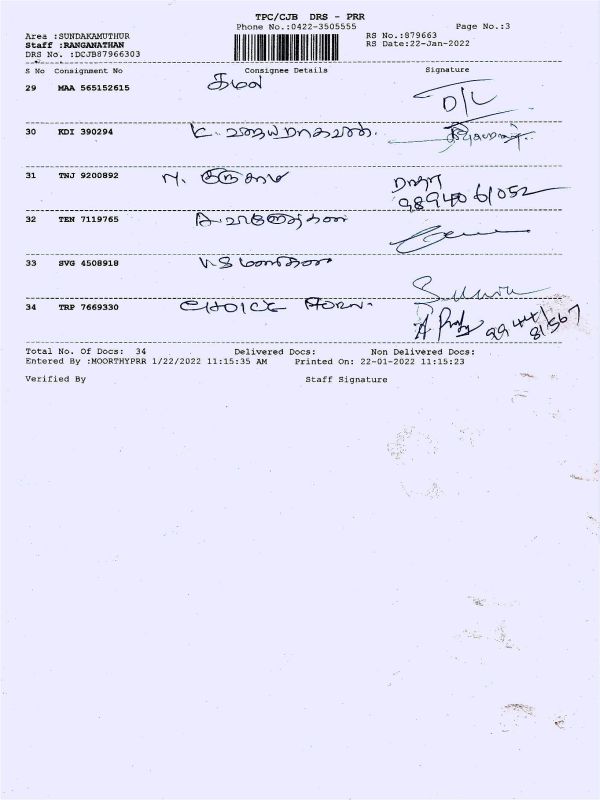 TPC/CJB DRS - PRR
Phone No.:0422-3505555
Page No.:3
Area :SUNDAKAMUTHUR
RS No.:879663
Staff :RANGANATHAN
RS Date:22-Jan-2022
DRS No. :DCJB87966303
S No Consignment No Consignee Details Signature
29 MAA 565152615 கமல் D/L
30 KDI 390294
31 TNJ 9200892
98940 61052
32 TEN 7119765
33 SVG 4508918
34 TRP 7669330 CHOICE
99441
81567
Total No. Of Docs: 34 Delivered Docs: Non Delivered Docs:
Entered By :MOORTHYPRR 1/22/2022 11:15:35 AM Printed On: 22-01-2022 11:15:23
Verified By Staff Signature